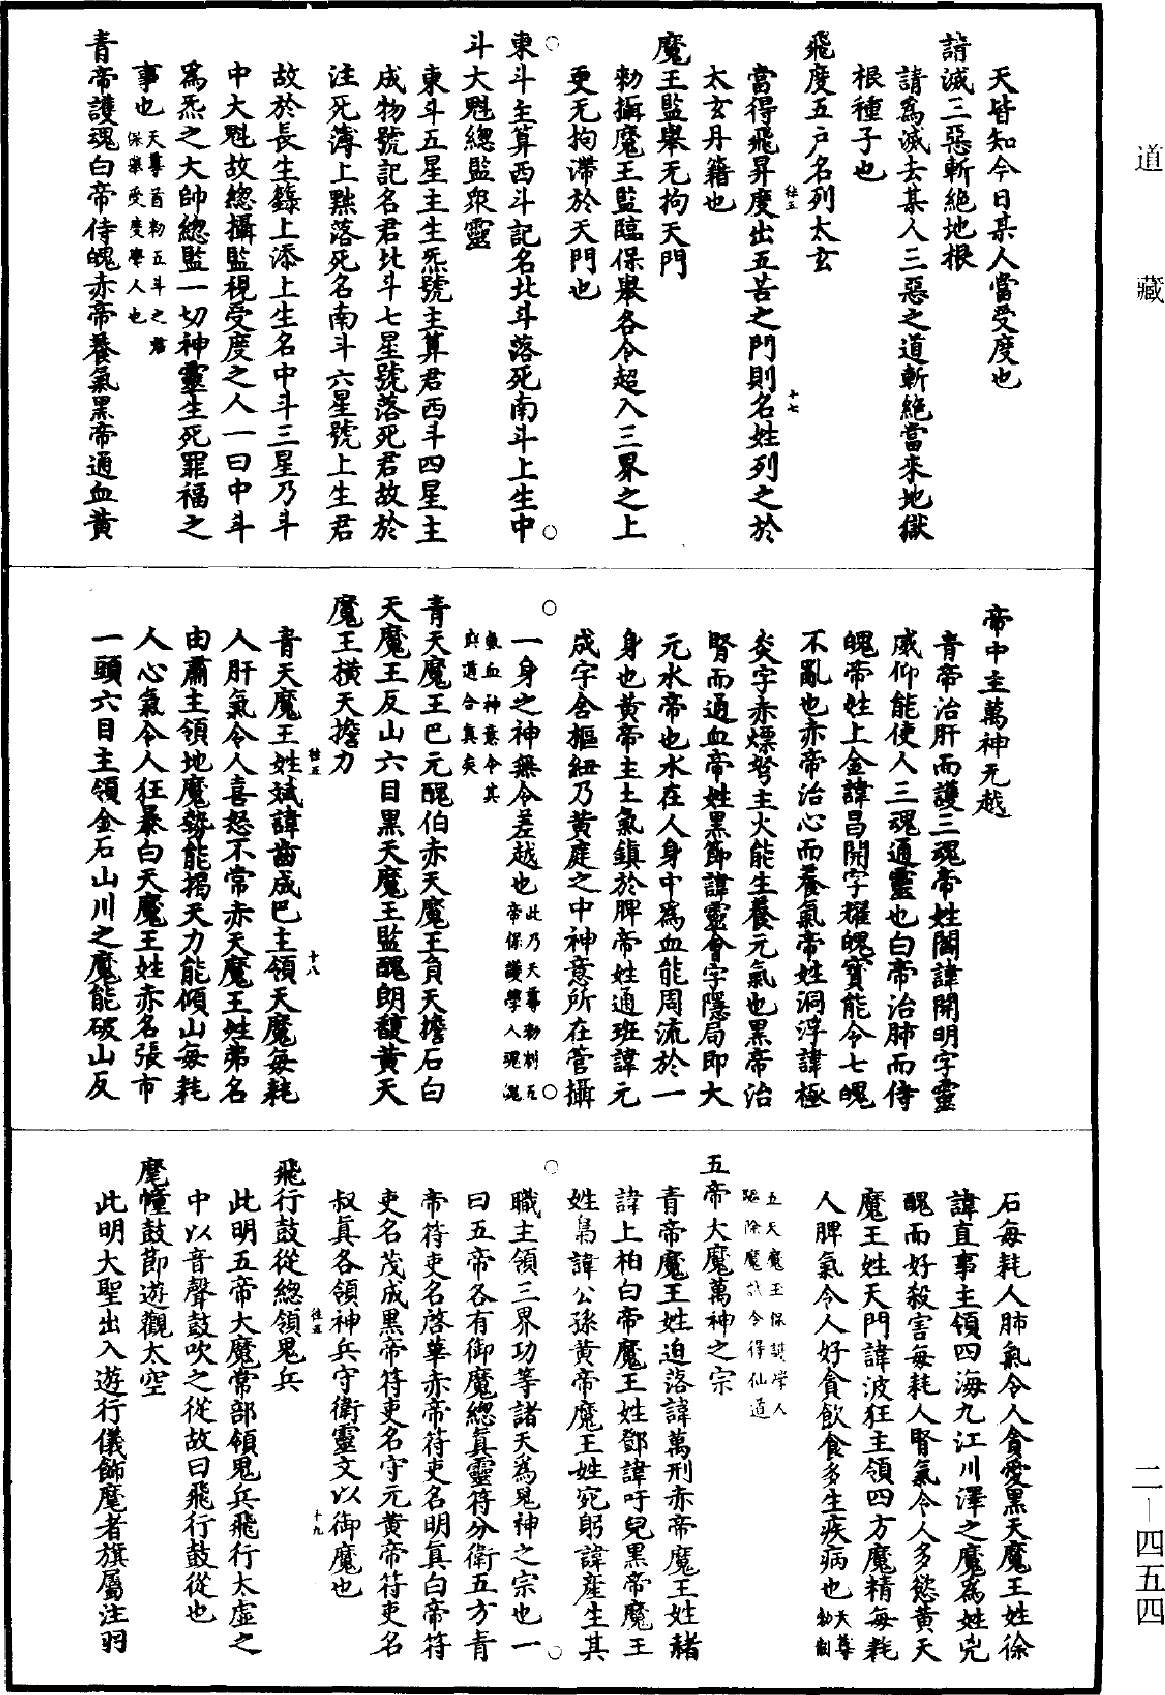 道藏
天皆知今日某人當受度也
請滅三惡斬絕地根
請為滅去某人三惡之道斬絕當來地獄
根種子也
飛度五戶名列太玄
當得飛昇度出五苦之門則名姓列之於
太玄丹籍也
魔王監舉无拘天門
勑攝魔王監臨保舉各令超入三界之上
更无拘滯於天門也
東斗主算西斗記名北斗落死南斗上生中
斗大魁總監眾靈
東斗五星主生炁號主算君西斗四星主
成物號記名君北斗七星號落死君故於
注死簿上黜落死名南斗六星號上生君
故於長生籙上添上生名中斗三星乃斗
中大魁故總攝監視受度之人一曰中斗
為炁之大帥總監一切神靈生死罪福之
事也天尊首勑五斗之君保舉受度學人也
青帝護魂白帝侍魄赤帝養氣黑帝通血黃
帝中主萬神无越
青帝治肝而護三魂帝姓閻諱開明字靈
威仰能使人三魂通靈也白帝治肺而侍
魄帝姓上金諱昌開字耀魄寶能令七魄
不亂也赤帝治心而養氣帝姓洞浮諱極
炎字赤熛弩主火能生養元氣也黑帝治
腎而通血帝姓黑節諱靈會字隱局即大
元水帝也水在人身中為血能周流於一
身也黃帝主土氣鎮於脾帝姓通班諱元
成字含樞紐乃黃庭之中神意所在管攝
一身之神無令差越也此乃天尊勑制五帝保護學人魂魄
氣血神意令其與道合真矣
青天魔王巴元醜伯赤天魔王負天擔石白
天魔王反山六目黑天魔王監醜朗馥黃天
魔王橫天擔力
青天魔王姓斌諱齒成巴主領天魔每耗
人肝氣令人喜怒不常赤天魔王姓弗名
由肅主領地魔勢能揭天力能傾山每耗
人心氣令人狂暴白天魔王姓赤名張市
一頭六目主領金石山川之魔能破山反
石每耗人肺氣令人貪愛黑天魔王姓徐
諱直事主領四海九江川澤之魔為姓兇
醜而好殺害每耗人腎氣令人多慾黃天
魔王姓天門諱波狂主領四方魔精每耗
人脾氣令人好貪飲食多生疾病也天尊勑制
五天魔王保舉學人驅除魔試令得仙道
五帝大魔萬神之宗
青帝魔王姓迫落諱萬刑赤帝魔王姓赭
諱上柏白帝魔王姓鄧諱吁兒黑帝魔王
姓梟諱公孫黃帝魔王姓宛躬諱產生其
職主領三界功等諸天為鬼神之宗也一
曰五帝各有御魔總真靈符分衛五方青
帝符吏名啓華赤帝符吏名明真白帝符
吏名茂成黑帝符吏名守元黃帝符吏名
叔真各領神兵守衛靈文以御魔也
飛行鼓從總領鬼兵
此明五帝大魔常部領鬼兵飛行太虛之
中以音聲鼓吹之從故曰飛行鼓從也
麾幢鼓節遊觀太空
此明大聖出入遊行儀飾麾者旗屬注羽
二－四五四